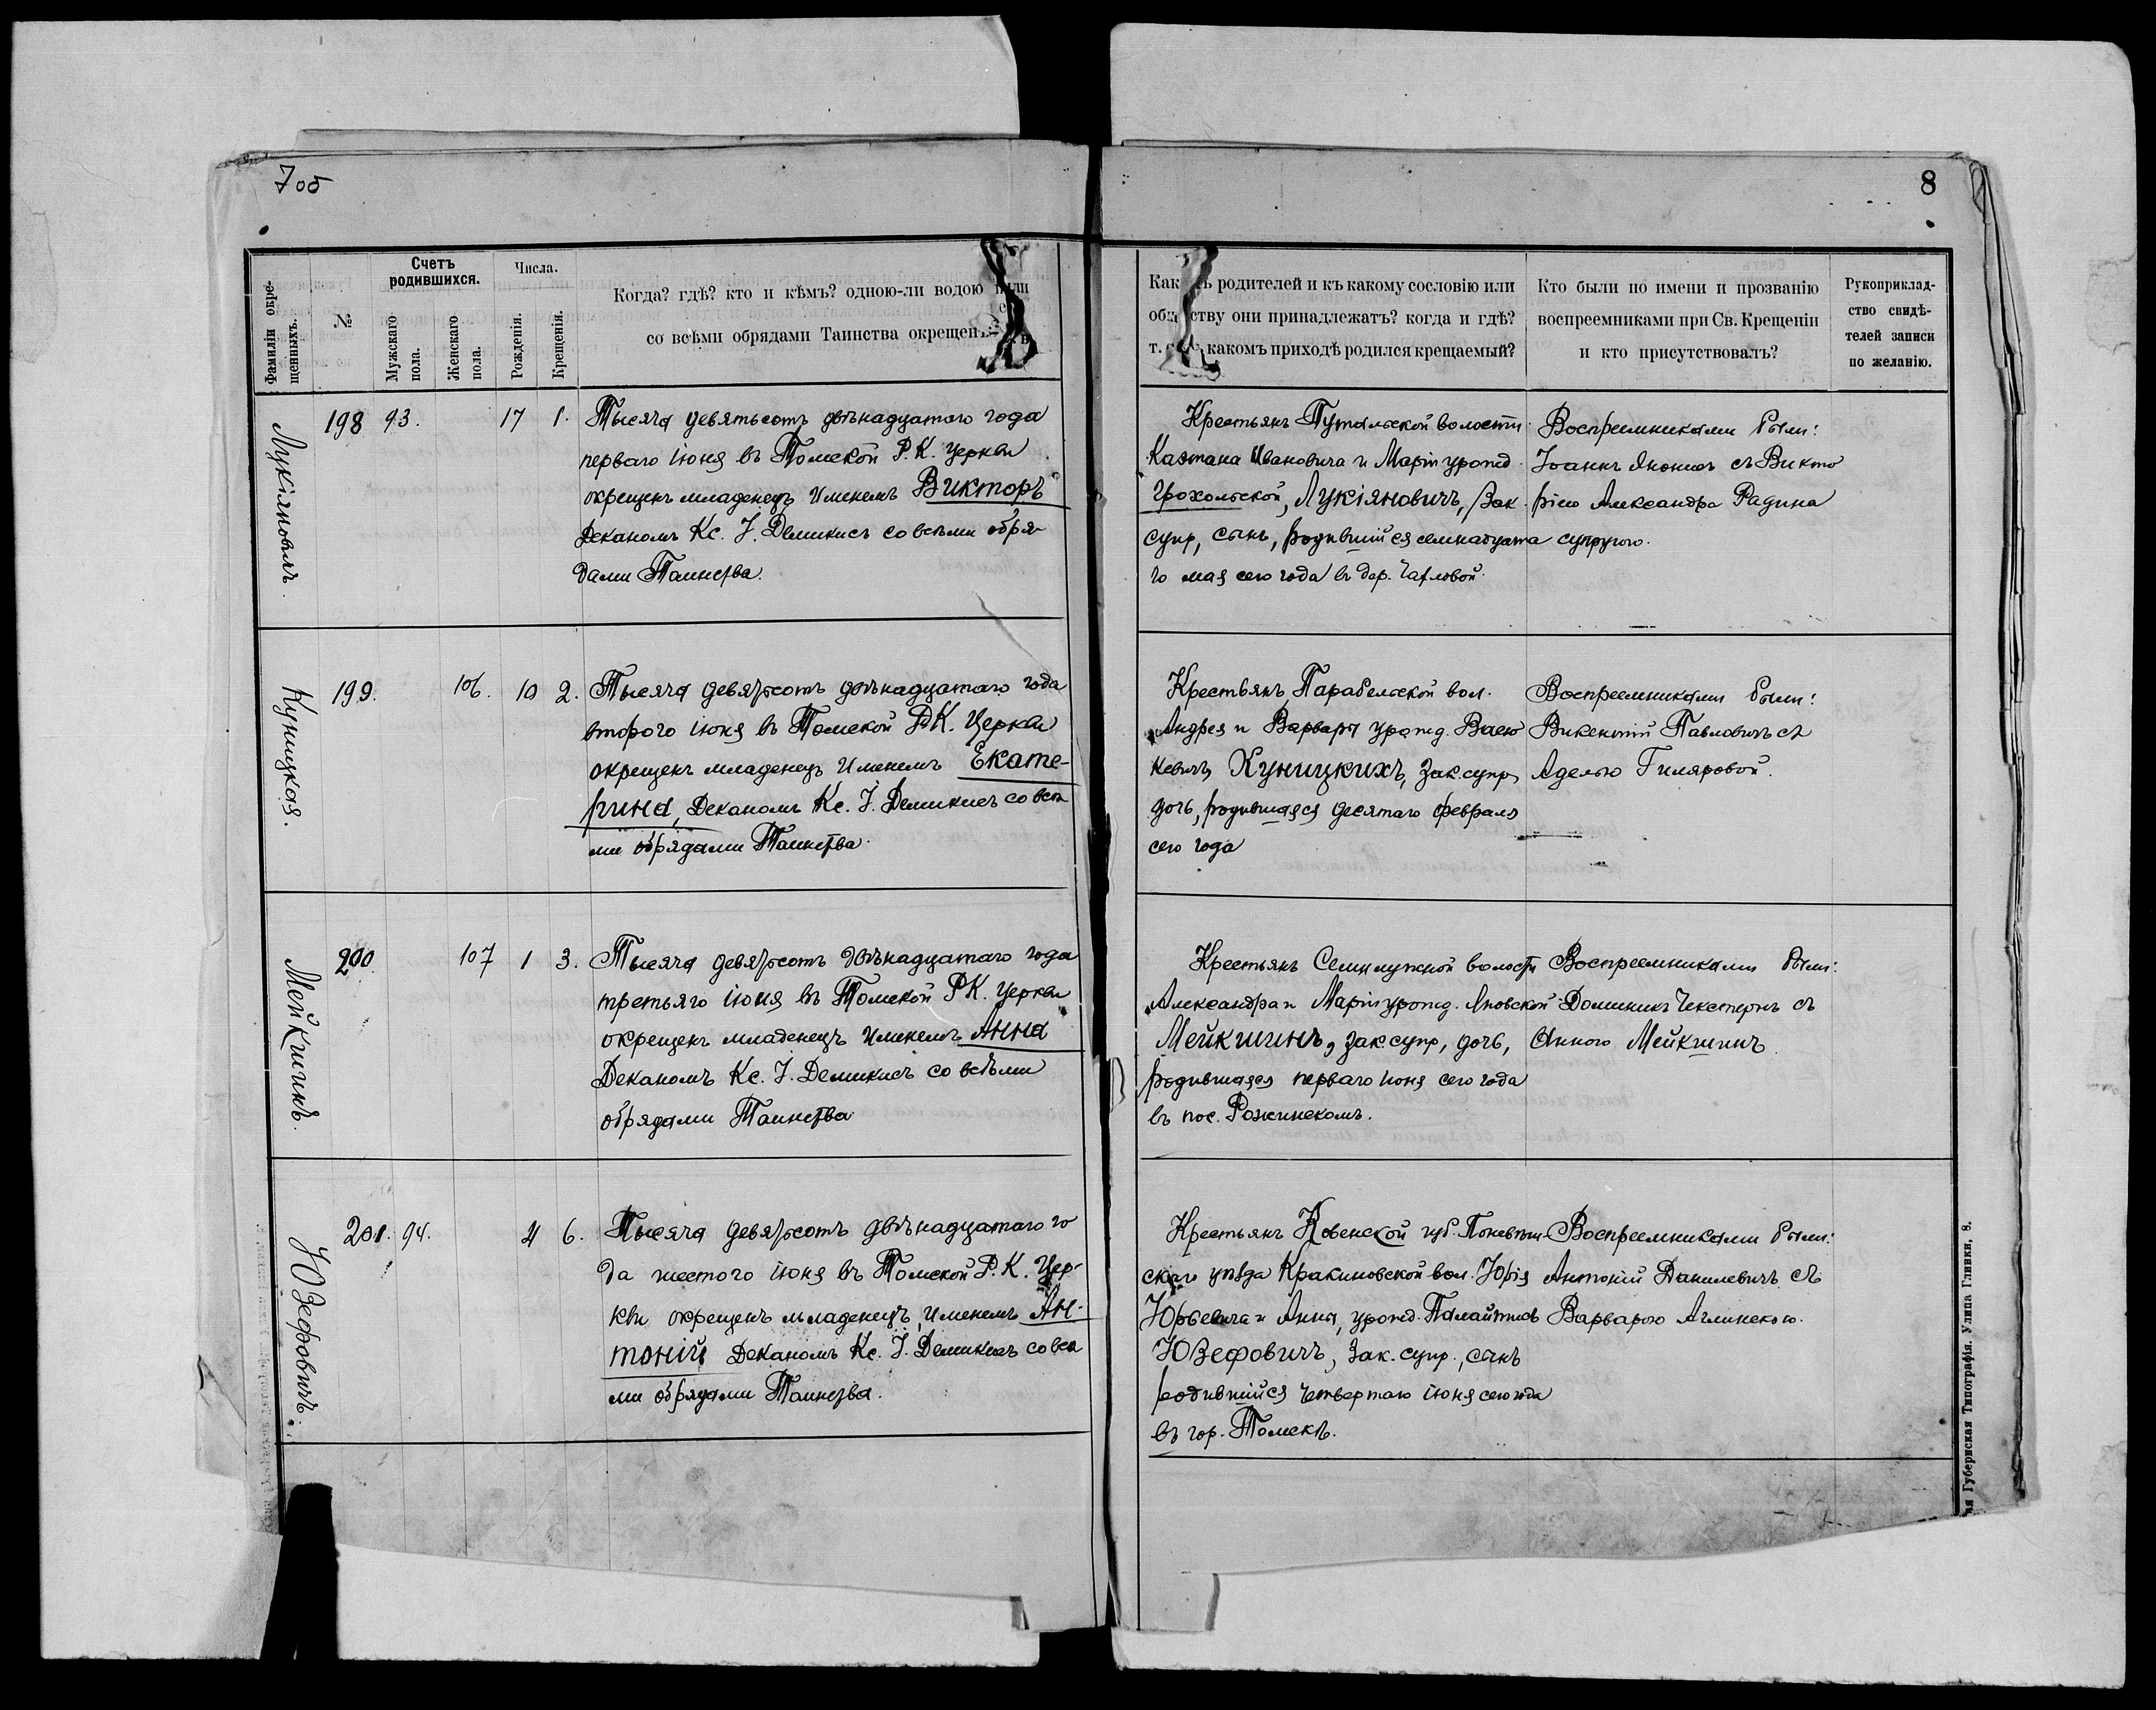 7об
8
Фамиліи окре-
щенныхъ.
№
Счетъ
родившихся.
Мужскаго
пола.
Женскаго
пола.
Числа.
Рожденія.
Крещенія.
Когда? гдѣ? кто и кѣмъ? одною-ли водою или
со всѣми обрядами Таинства окрещенъ
родителей и къ какому сословію или
они принадлежатъ? когда и гдѣ?
какомъ приходѣ родился крещаемый?
Кто были по имени и прозванію
воспреемниками при Св. Крещеніи
и кто присутствовалъ?
Рукоприклад-
ство свидѣ-
телей записи
по желанію.
Лукіяновичъ.
198 93. 17 1.
Тысяча девятьсотъ двѣнадцатаго года
перваго іюня въ Томской Р. К. Церкви
окрещенъ младенецъ именемъ Викторъ
Деканомъ Кс. І. Демикисъ со всѣми обря-
дами Таинства.
Крестьянъ волости
Каэтана Ивановича и Маріи урожд.
Грохольской, Лукіяновичъ, Зак.
супр, сынъ, родившійся семнадцата
го мая сего года въ дер.
Воспреемниками были:
Іоаннъ съ Викто
ріею Александра Радина
супругою.
Куницкая.
199. 106. 10 2.
Тысяча девятьсотъ двѣнадцатаго года
второго іюня въ Томской Р.К. Церкви
окрещенъ младенецъ именемъ Екате-
рина, Деканомъ Кс. І. Демикисъ со всѣ
ми обрядами Таинства.
Крестьянъ Парабельской вол.
Андрея и Варвары урожд. Васю
кевичъ Куницкихъ, зак супр,
дочь, родившаяся десятаго февраля
сего года
Воспреемниками были:
Викентій Павловичъ съ
Аделью Гиляровой.
Мейкшинъ.
200. 107 1 3.
Тысяча девятьсотъ двѣнадцатаго года
третьяго іюня въ Томской Р К. Церкви
окрещенъ младенецъ именемъ Анна
Деканомъ Кс. І. Демикисъ со всѣми
обрядами Таинства
Крестьянъ Семилужной волости
Александра и Маріи урожд. Яновской
Мейкшинъ, зак. супр, дочь,
родившаяся перваго іюня сего года
въ пос. Рожинскомъ.
Воспреемниками были:
Доминикъ съ
Анною Мейкшинъ
Юзефовичъ.
201. 94. 4 6.
Тысяча девятьсотъ двѣнадцатаго го
да шестого іюня въ Томской Р. К. Цер-
кви окрещенъ младенецъ, именемъ Ан-
тоній Деканомъ Кс. І. Демикисъ со всѣ
ми обрядами Таинства.
Крестьянъ Ковенской губ. Поневѣж-
скаго уѣзда Кракиновской вол. Юрія
Юрьевича и Анны, урожд.
Юзефовичъ, Зак. супр., сынъ
родившійся четвертаго іюня сего года
въ гор. Томскѣ.
Воспреемниками были:
Антоній Данилевичъ съ
Варварою Аглинскою.
Губернская Типографія. Улица Глинки, 8.